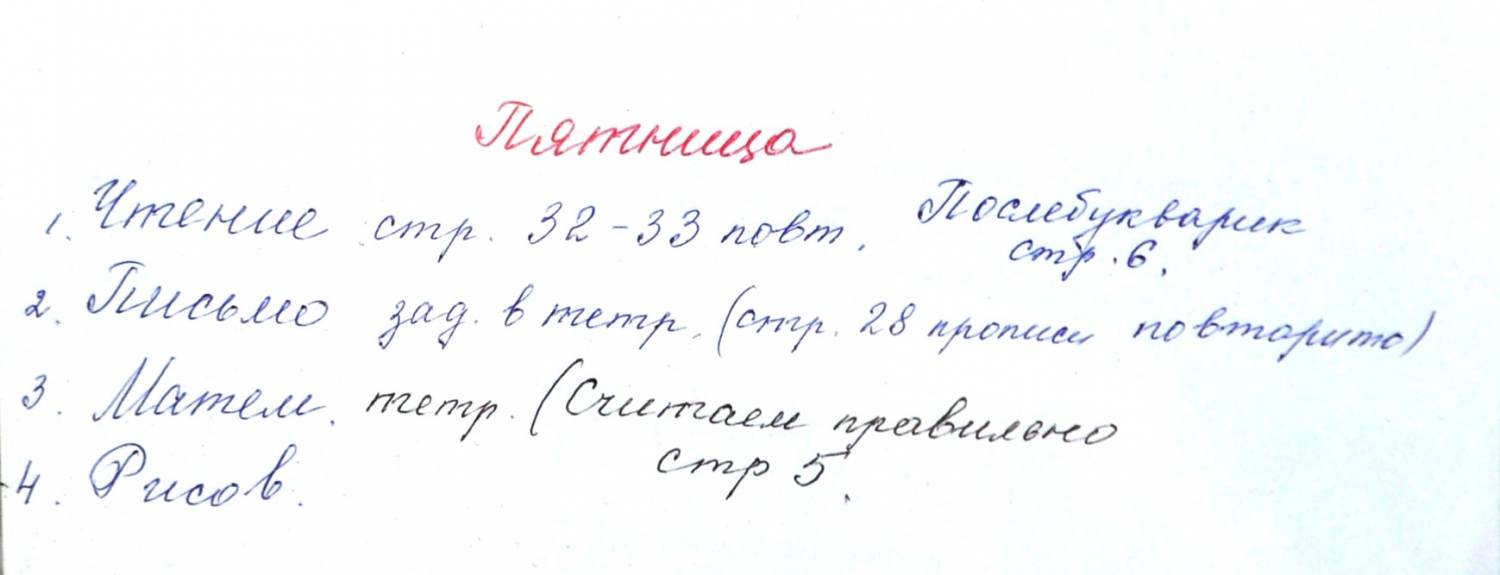 Пятница
1. Чтение стр. 32-33 повт. Послебукварик
стр. 6.
2. Письмо зад. в тетр. (стр. 28 прописи повторить)
3. Матем. тетр. (Считаем правильно
стр 5.
4. Рисов.